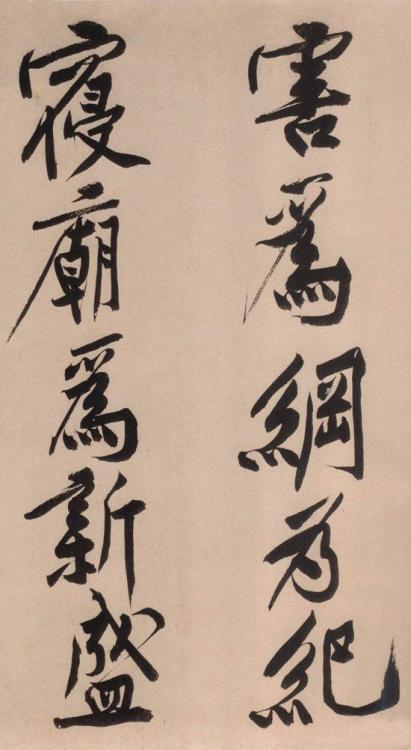 害爲綱爲紀
寢廟爲新盛